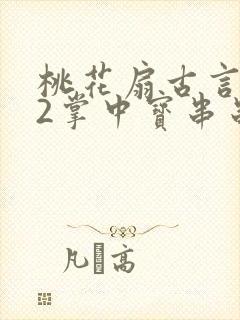 桃花扇古言
2掌中寳串
凡 高